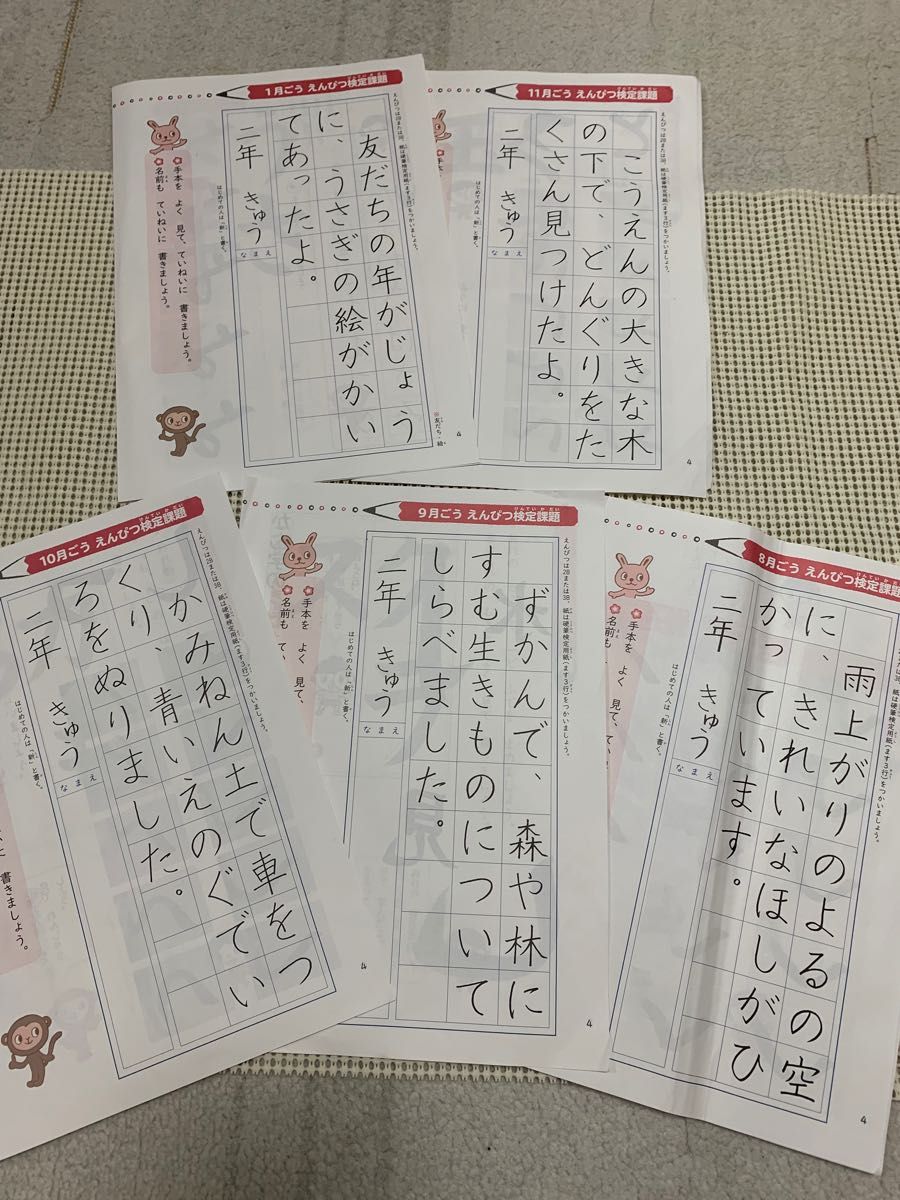 1月ごう えんぴつ検定課題
えんぴつは2Bまたは3B、紙は硬筆検定用紙(ます3行)をつかいましょう。
友だちの年がじょう
に、うさぎの絵がかい
てあったよ。
二年 きゅう
なまえ
はじめての人は「新」と書く。
手本を よく 見て、ていねいに 書きましょう。
名前も ていねいに 書きましょう。
※友だち・絵
4
11月ごう えんぴつ検定課題
えんぴつは2Bまたは3B、紙は硬筆検定用紙(ます3行)をつかいましょう。
こうえんの大きな木
の下で、どんぐりをた
くさん見つけたよ。
二年 きゅう
なまえ
はじめての人は「新」と書く。
4
10月ごう えんぴつ検定課題
えんぴつは2Bまたは3B、紙は硬筆検定用紙(ます3行)をつかいましょう。
かみねん土で車をつ
くり、青いえのぐでい
ろをぬりました。
二年 きゅう
なまえ
はじめての人は「新」と書く。
書きましょう。
4
9月ごう えんぴつ検定課題
えんぴつは2Bまたは3B、紙は硬筆検定用紙(ます3行)をつかいましょう。
ずかんで、森や林に
すむ生きものについて
しらべました。
二年 きゅう
なまえ
はじめての人は「新」と書く。
手本を よく 見て、
名前も てい
4
8月ごう えんぴつ検定課題
えんぴつは2Bまたは3B、紙は硬筆検定用紙(ます3行)をつかいましょう。
雨上がりのよるの空
に、きれいなほしがひ
かっています。
二年 きゅう
なまえ
はじめての人は「新」と書く。
手本を よく 見て、てい
名前も
4